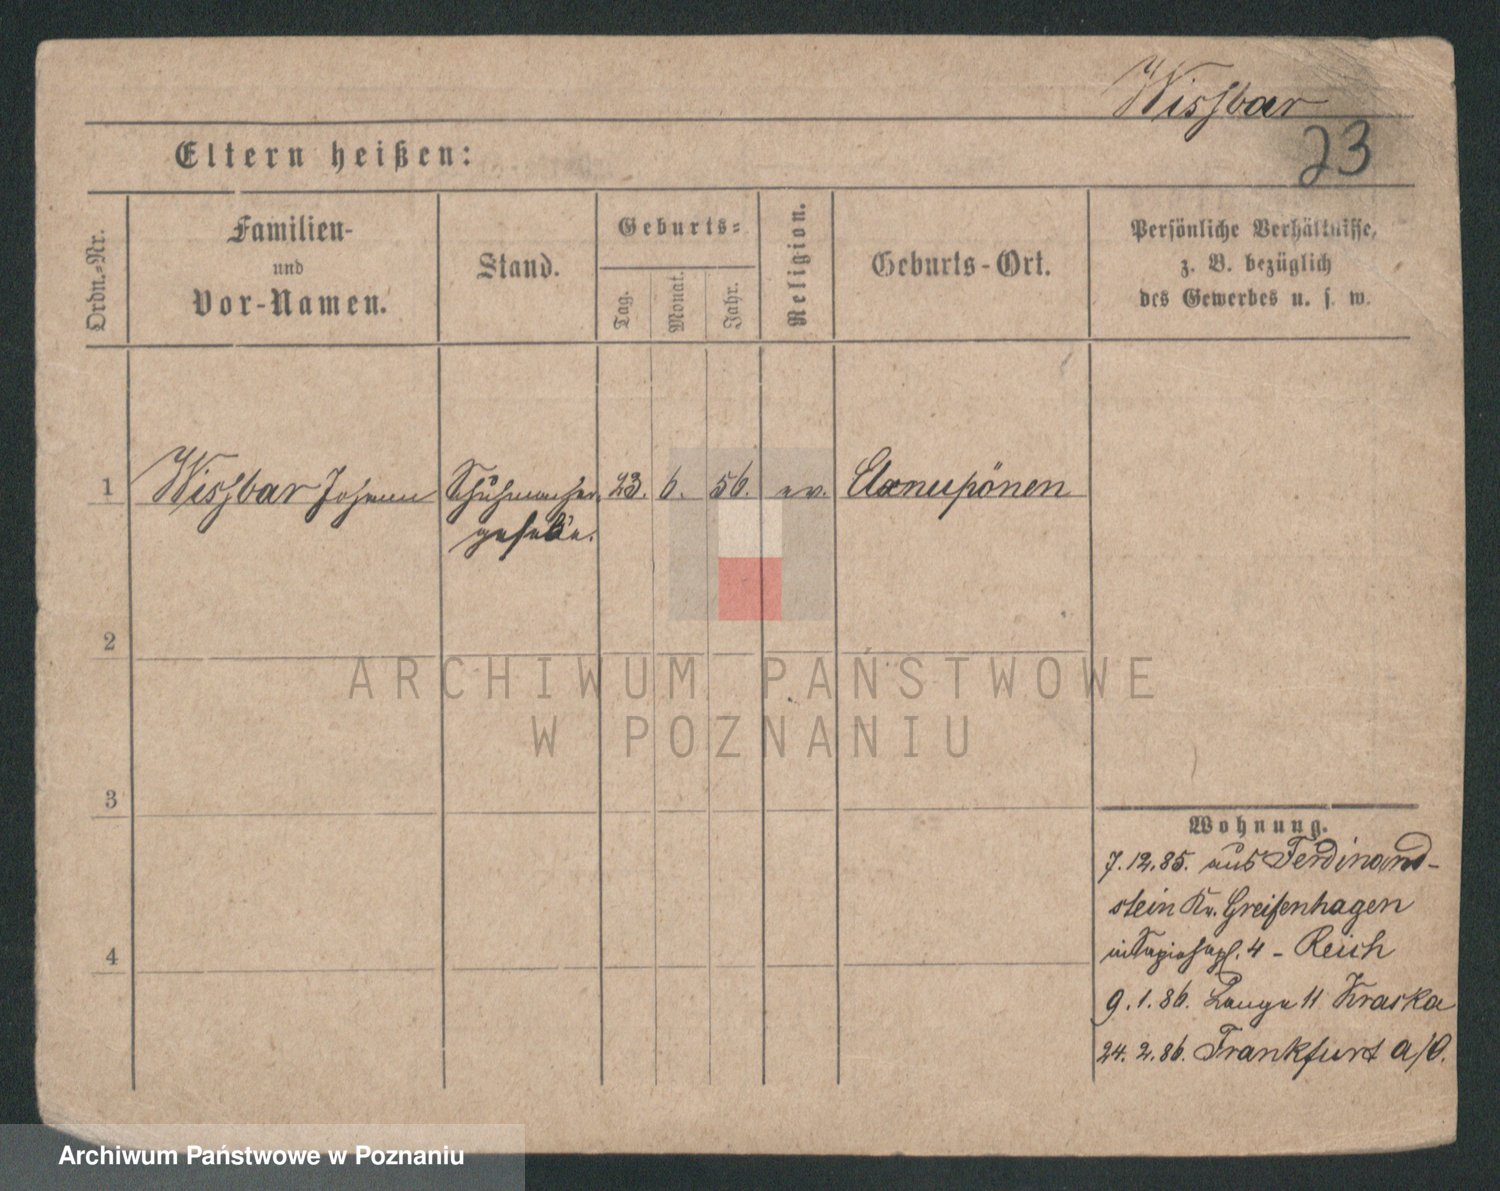 Wissbar
23
Eltern heißen:
Ordn.-Nr.
Familien-
und
Vor-Namen.
Stand.
Geburts-
Tag.
Monat.
Jahr.
Religion.
Geburts-Ort.
Persönliche Verhältnisse,
z. B. bezüglich
des Gewerbes u. s. w.
1
Wissbar Johann
Schuhmacher
geselle.
23. 6. 56.
ev.
2
3
4
Wohnung.
7.12.85. aus Ferdinand-
stein Kr. Greifenhagen
in Sapiehapl. 4 - Reich
9.1.86. Lange 11 Kraska
24.2.86. Frankfurt a/O.
ARCHIWUM PAŃSTWOWE
W POZNANIU
Archiwum Państwowe w Poznaniu